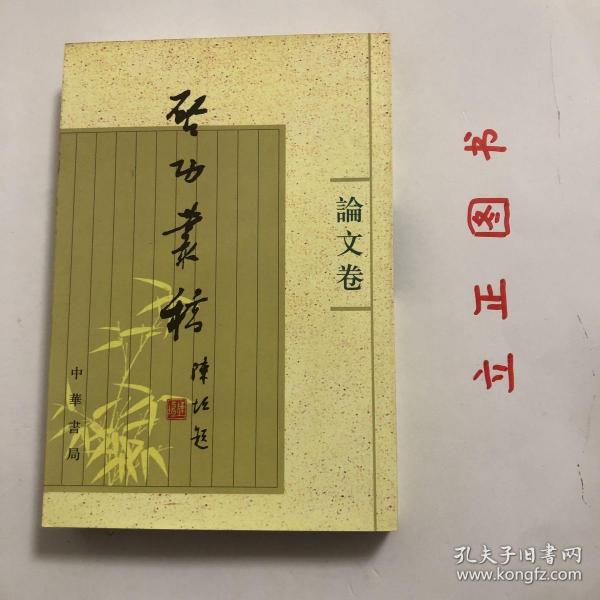 启功叢稿
陳垣題
論文卷
中華書局
立正图书
孔夫子旧书网
www.kongfz.com